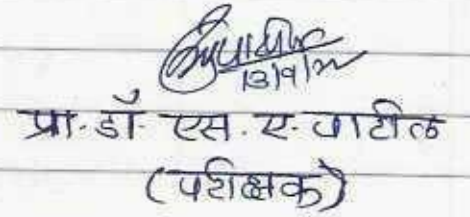 13/9/22
प्रा. डॉ. एस. ए. पाटील
(परीक्षक)